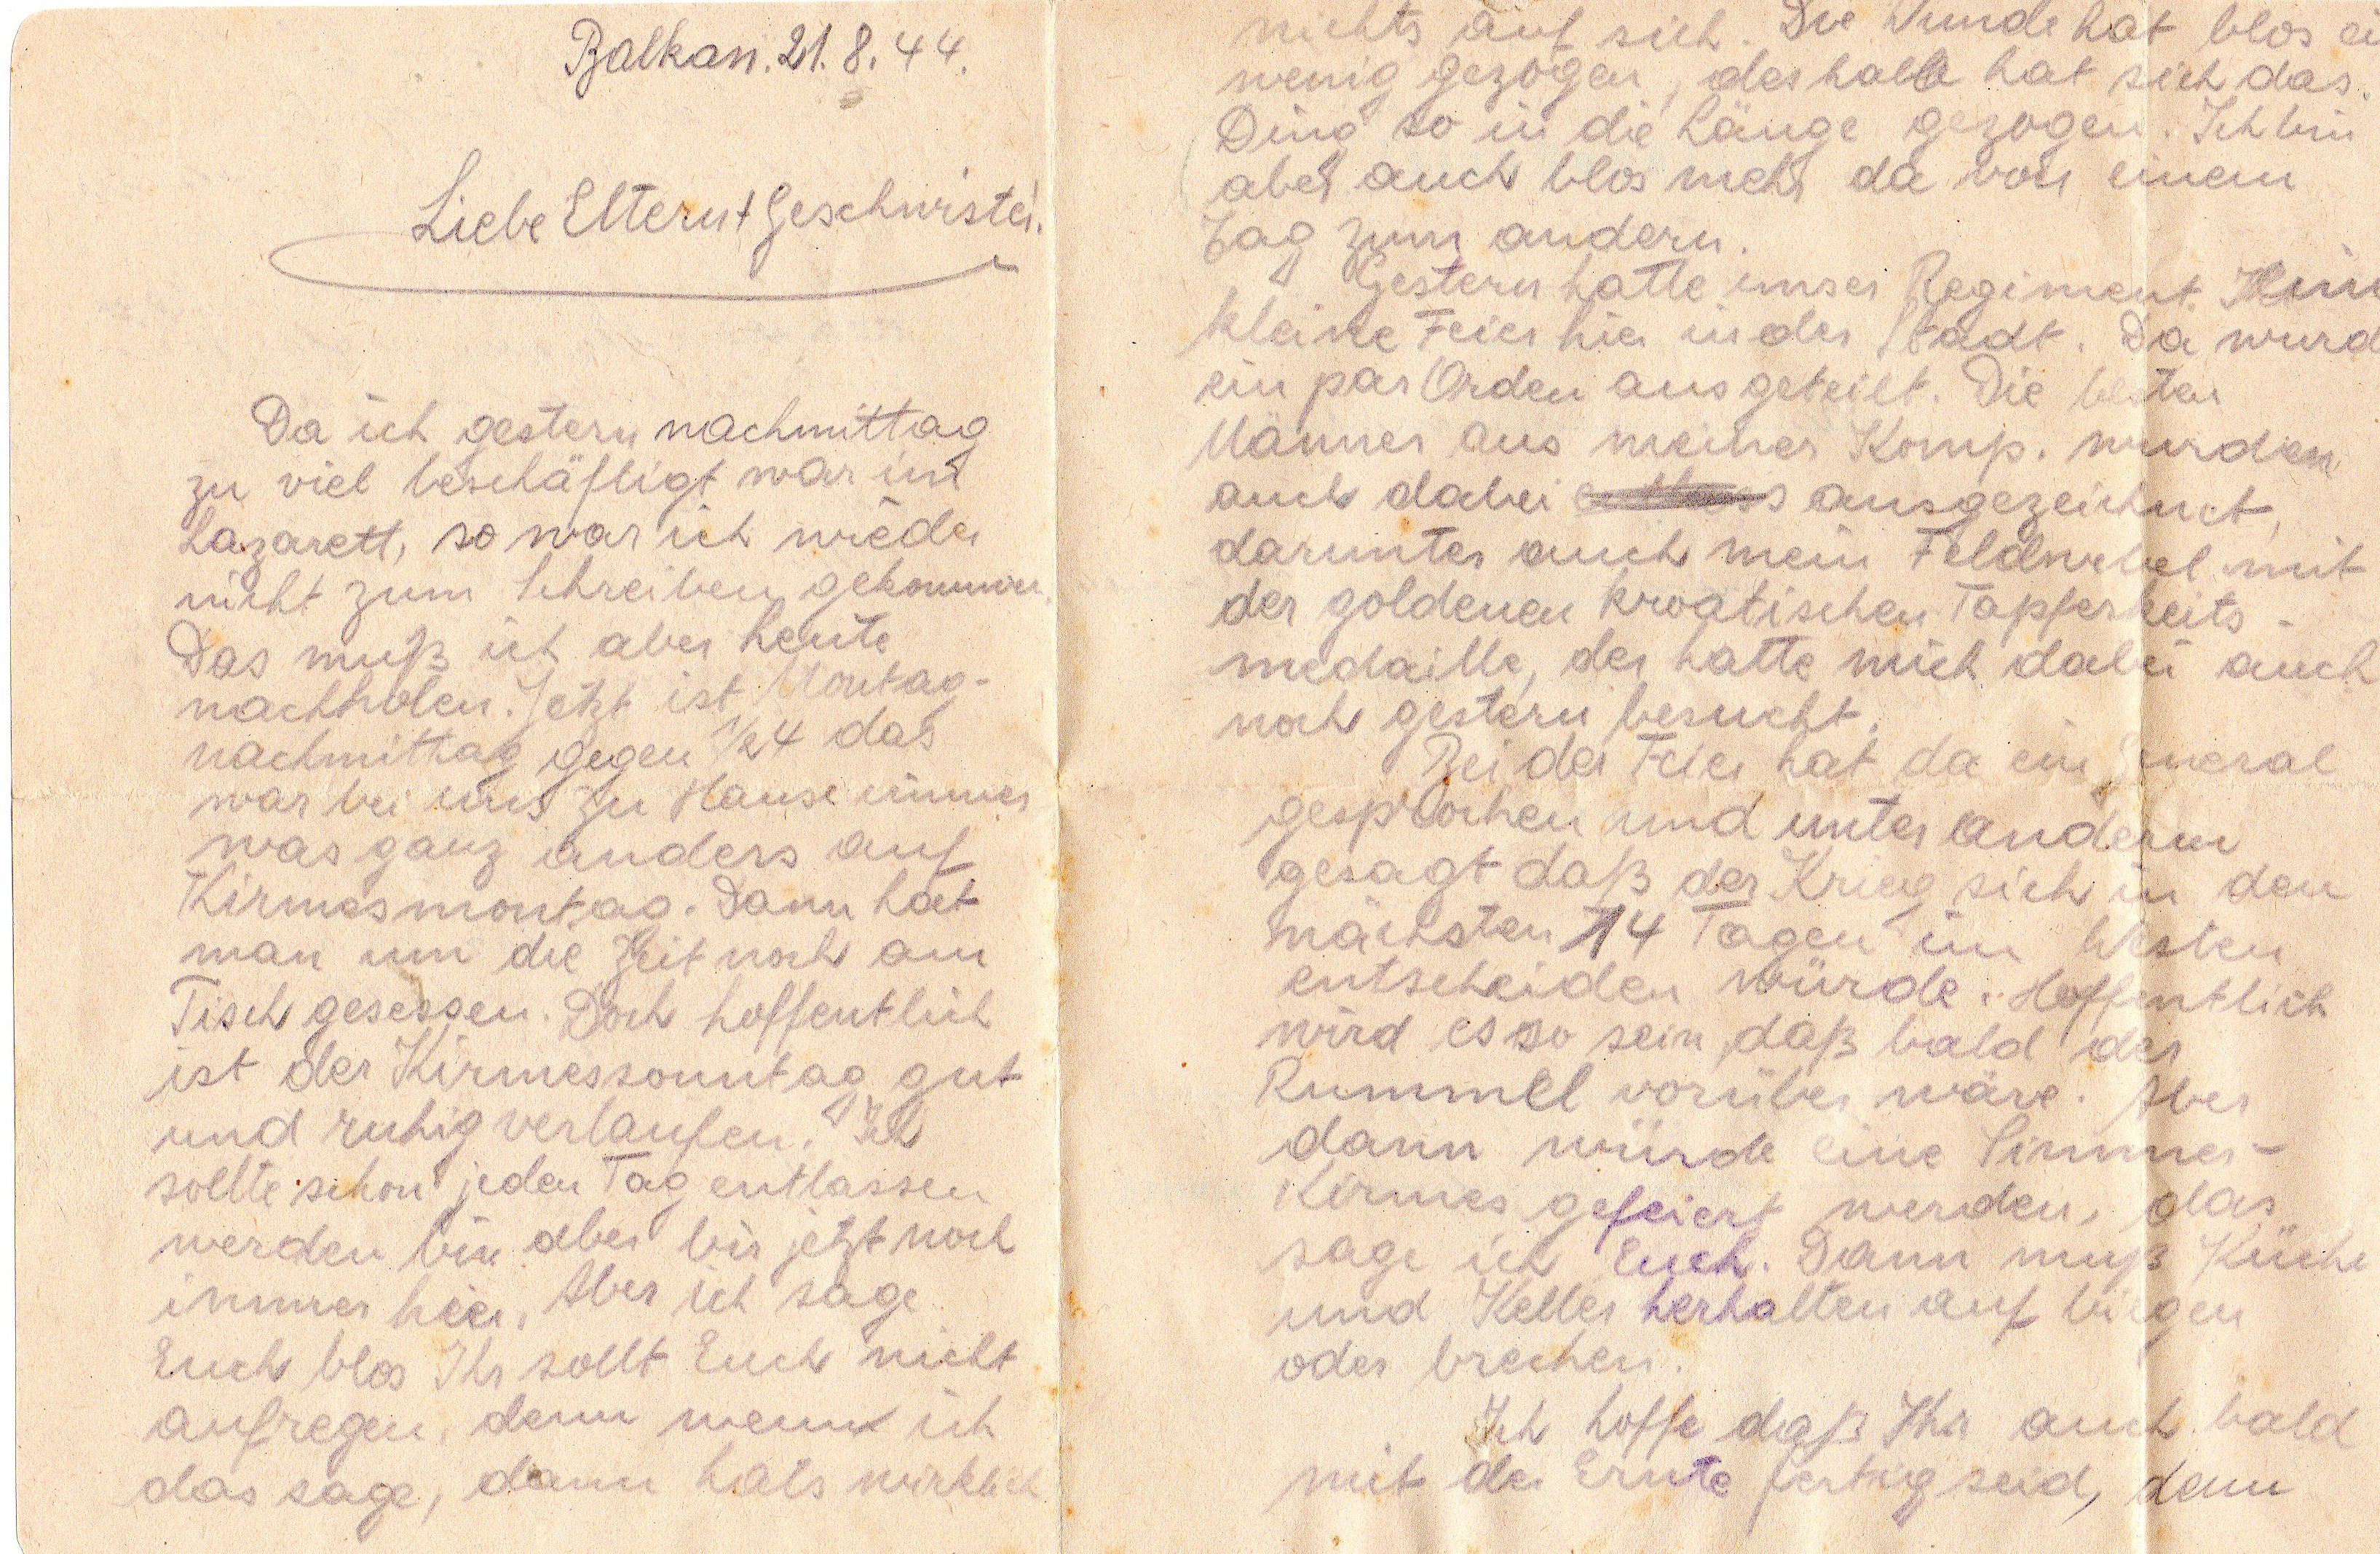 Balkan. 21. 8. 44.
Liebe Eltern + Geschwister.
Da ich gestern nachmittag
zu viel beschäftigt war im
Lazarett, so war ich wieder
nicht zum Schreiben gekommen.
Das muß ich aber heute
nachholen. Jetzt ist Montag-
nachmittag gegen 1/24 das
war bei uns zu Hause immer
was ganz anders auf
Kirmesmontag. Dann hat
man um die Zeit noch am
Tisch gesessen. Doch hoffentlich
ist der Kirmessonntag gut
und ruhig verlaufen. Ich
sollte schon jeden Tag entlassen
werden bin aber bis jetzt noch
immer hier. Aber ich sage
Euch blos Ihr sollt Euch nicht
aufregen, denn wenn ich
das sage, dann hats wirklich
nichts auf sich. Die Wunde hat blos ei
wenig gezogen, deshalb hat sich das
Ding so in die Länge gezogen. Ich bin
aber auch blos mehr da von einem
Tag zum andern.
Gestern hatte unser Regiment
kleine Feier hier in der Stadt. Da wurd
ein par Orden ausgeteilt. Die besten
Männer aus meiner Komp. wurden
auch dabei ausgezeichnet,
darunter auch mein Feldwebel mit
der goldenen kroatischen Tapferkeits-
medaille, der hatte mich dabei auch
noch gestern besucht.
Bei der Feier hat da ein General
gesprochen und unter anderm
gesagt daß der Krieg sich in den
nächsten 14 Tagen im Westen
entscheiden würde. Hoffentlich
wird es so sein, daß bald der
Rummel vorüber wäre. Aber
dann würde eine Simmer-
Kirmes gefeiert werden, das
sage ich Euch. Dann muß Küche
und Keller herhalten auf biegen
oder brechen.
Ich hoffe daß Ihr auch bald
mit der Ernte fertig seid, denn